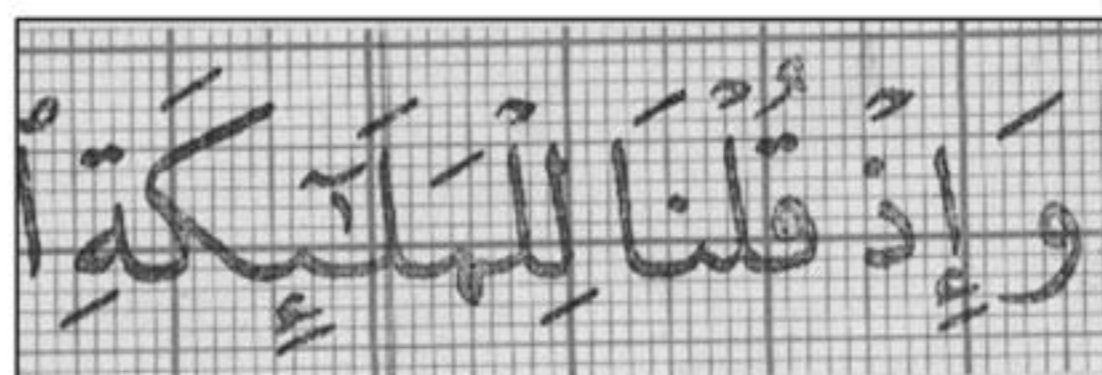 وَإِذْ قُلْنَا لِلْمَلَٰٓئِكَةِ ٱ